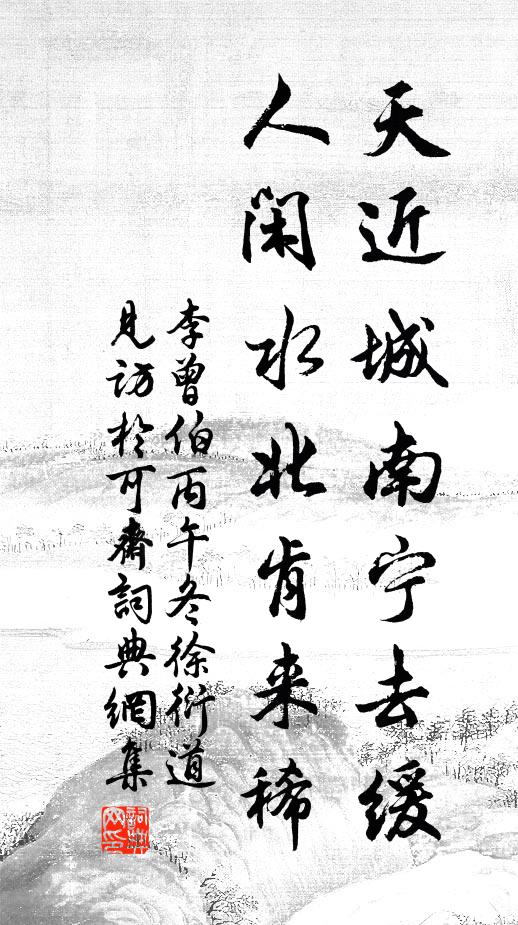 天近城南宁去缓
人闲水北肯来稀
李曾伯丙午冬徐衍道
见访於可斋詞典網集
詞典網印